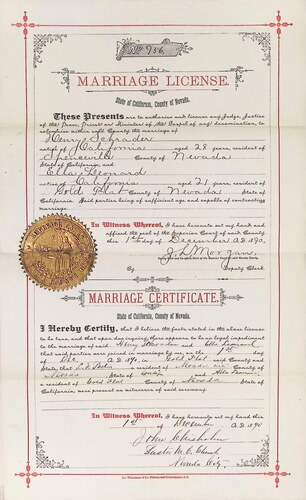 No. 986.
MARRIAGE LICENSE.
State of California, County of Nevada.
These Presents are to authorize and license any Judge, Justice
of the Peace, Priest or Minister of the Gospel of any denomination, to
solemnize within said County the marriage of
Henry Schrader
native of California aged 28 years, resident of
Spenceville County of Nevada
State of California, and
Ella Leonard
native of California aged 21 years, resident of
Gold Flat County of Nevada
State of California. Said parties being of sufficient age and capable of contracting
marriage.
In Witness Whereof, I have hereunto set my hand and
affixed the seal of the Superior Court of said County
this 1st day of December A.D. 1890.
J. L. Morgan
By Deputy Clerk
MARRIAGE CERTIFICATE.
State of California, County of Nevada.
I Hereby Certify, that I believe the facts stated in the above license
to be true, and that upon due inquiry, there appears to be no legal impediment
to the marriage of said Henry Schrader and Ella Leonard
that said parties were joined in marriage by me on the 1st day
of Dec. A.D. 1890, in Gold Flat said County and
State, that a resident of Nevada
County of and
a resident of Gold Flat County of Nevada State of
California, were present as witnesses of said ceremony.
In Witness Whereof, I have hereunto set my hand this
1st day of December A.D. 1890
John Chisholm
Pastor M. E. Church
Nevada City